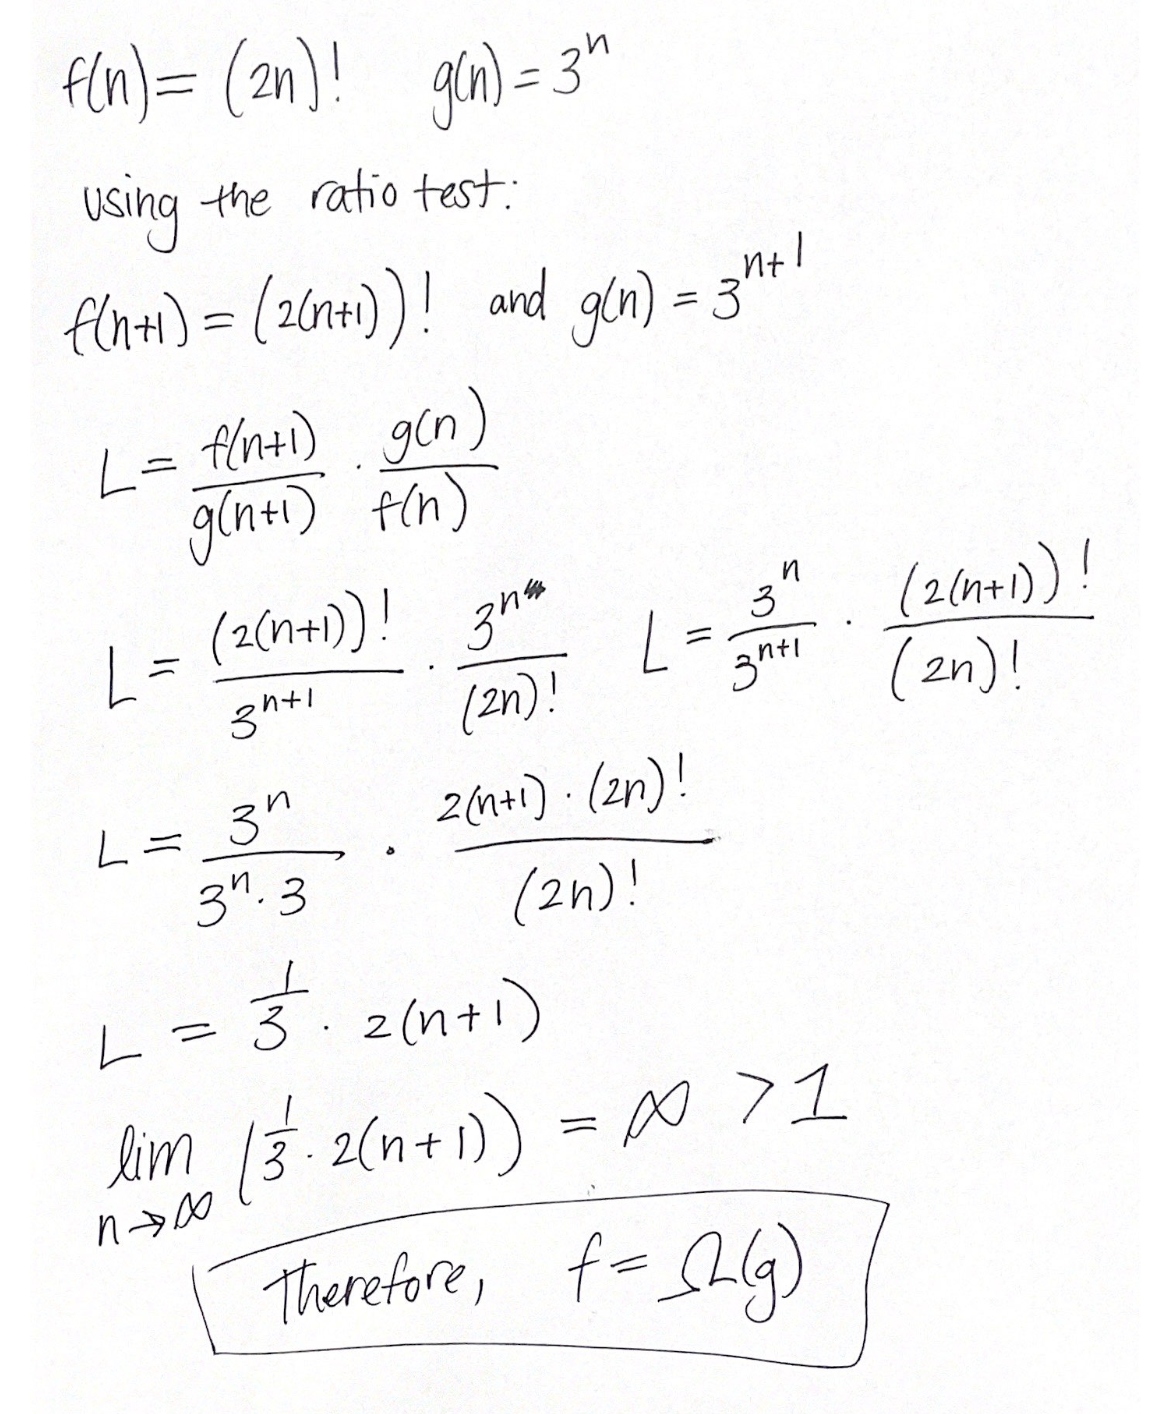 f(n) = (2n)!   g(n) = 3^n
using the ratio test:
f(n+1) = (2(n+1))! and g(n) = 3^{n+1}
L = \frac{f(n+1)}{g(n+1)} · \frac{g(n)}{f(n)}
L = \frac{(2(n+1))!}{3^{n+1}} · \frac{3^n}{(2n)!}   L = \frac{3^n}{3^{n+1}} · \frac{(2(n+1))!}{(2n)!}
L = \frac{3^n}{3^n · 3} · \frac{2(n+1) · (2n)!}{(2n)!}
L = \frac{1}{3} · 2(n+1)
\lim_{n→∞} (\frac{1}{3} · 2(n+1)) = ∞ > 1
Therefore, f = Ω(g)